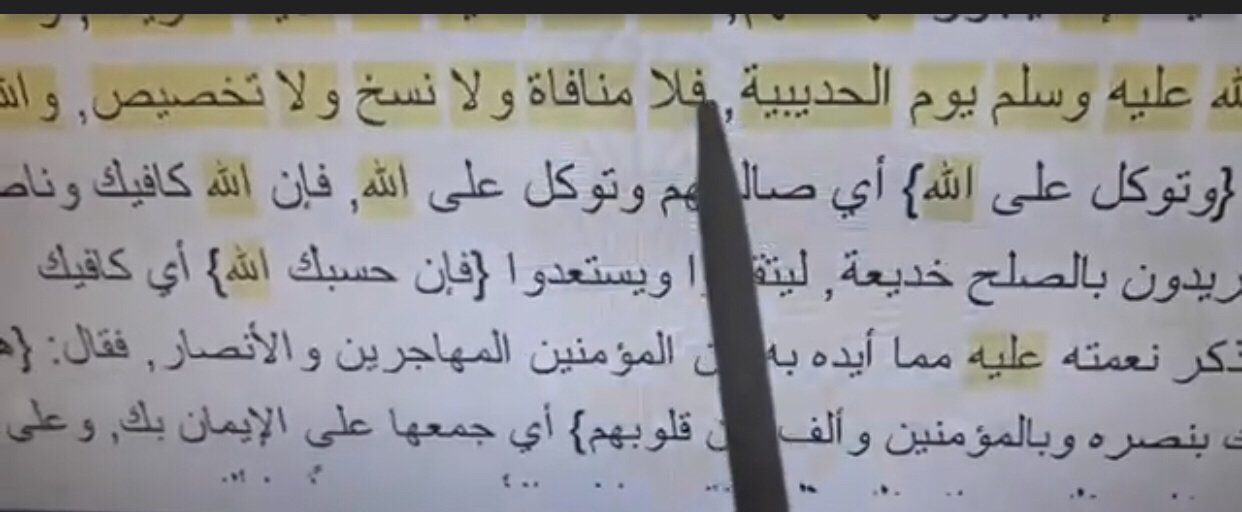 لله عليه وسلم يوم الحديبية, فلا منافاة ولا نسخ ولا تخصيص, والله
{وتوكل على الله} أي وتوكل على الله, فإن الله كافيك
ريدون بالصلح خديعة, ويستعدوا {فإن حسبك الله} أي كافيك
ذكر نعمته عليه مما أيده به المؤمنين المهاجرين والأنصار, فقال:
بنصره وبالمؤمنين وألف قلوبهم} أي جمعها على الإيمان بك, وعلى